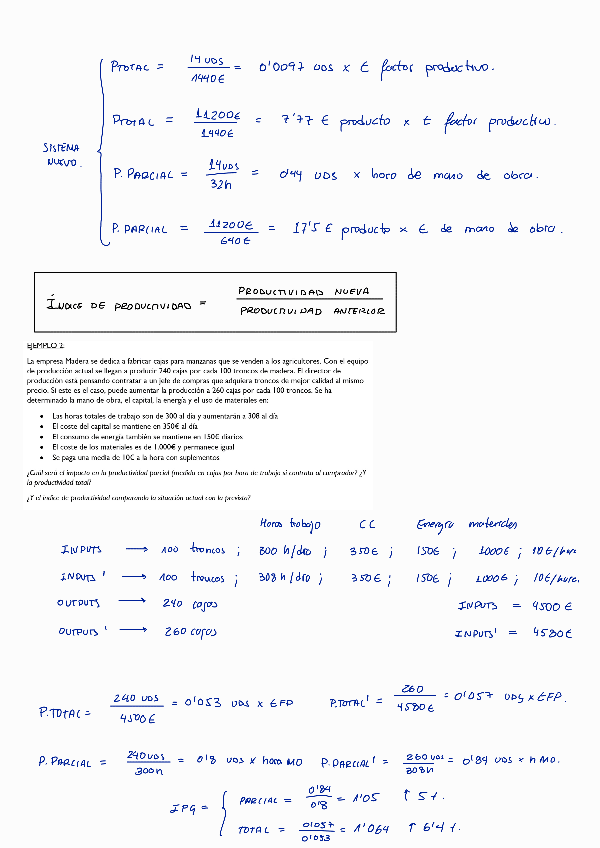 PTOTAL = 14 UDS / 1440€ = 0'0097 UDS x € factor productivo.
PTOTAL = 11200€ / 1440€ = 7'77 € producto x € factor productivo.
SISTEMA NUEVO.
P. PARCIAL = 14UDS / 32h = 0'44 UDS x hora de mano de obra.
P. PARCIAL = 11200€ / 640€ = 17'5 € producto x € de mano de obra.
ÍNDICE DE PRODUCTIVIDAD = PRODUCTIVIDAD NUEVA / PRODUCTIVIDAD ANTERIOR
EJEMPLO 2:
La empresa Madera se dedica a fabricar cajas para manzanas que se venden a los agricultores. Con el equipo
de producción actual se llegan a producir 240 cajas por cada 100 troncos de madera. El director de
producción esta pensando contratar a un jefe de compras que adquiera troncos de mejor calidad al mismo
precio. Si este es el caso, puede aumentar la producción a 260 cajas por cada 100 troncos. Se ha
determinado la mano de obra, el capital, la energía y el uso de materiales en:
• Las horas totales de trabajo son de 300 al día y aumentarán a 308 al día
• El coste del capital se mantiene en 350€ al día
• El consumo de energía también se mantiene en 150€ diarios
• El coste de los materiales es de 1.000€ y permanece igual
• Se paga una media de 10€ a la hora con suplementos
¿Cuál será el impacto en la productividad parcial (medida en cajas por hora de trabajo si contrata al comprador? ¿Y
la productividad total?
¿Y el índice de productividad comparando la situación actual con la prevista?
Horas trabajo CC Energía materiales
INPUTS → 100 troncos ; 300 h/día ; 350€ ; 150€ ; 1000€ ; 10€/hora
INPUTS ' → 100 troncos ; 308 h/día ; 350€ ; 150€ ; 1000€ ; 10€/hora.
OUTPUTS → 240 cajas INPUTS = 4500€
OUTPUTS ' → 260 cajas INPUTS' = 4580€
P.TOTAL = 240 UDS / 4500€ = 0'053 UDS x €FP P.TOTAL' = 260 / 4580€ = 0'057 UDS x €FP.
P. PARCIAL = 240UDS / 300h = 0'8 UDS x hora MO P. PARCIAL' = 260 UDS / 308h = 0'84 UDS x h MO.
IPG = PARCIAL = 0'84 / 0'8 = 1'05 ↑ 5%.
TOTAL = 0'057 / 0'053 = 1'064 ↑ 6'4%.